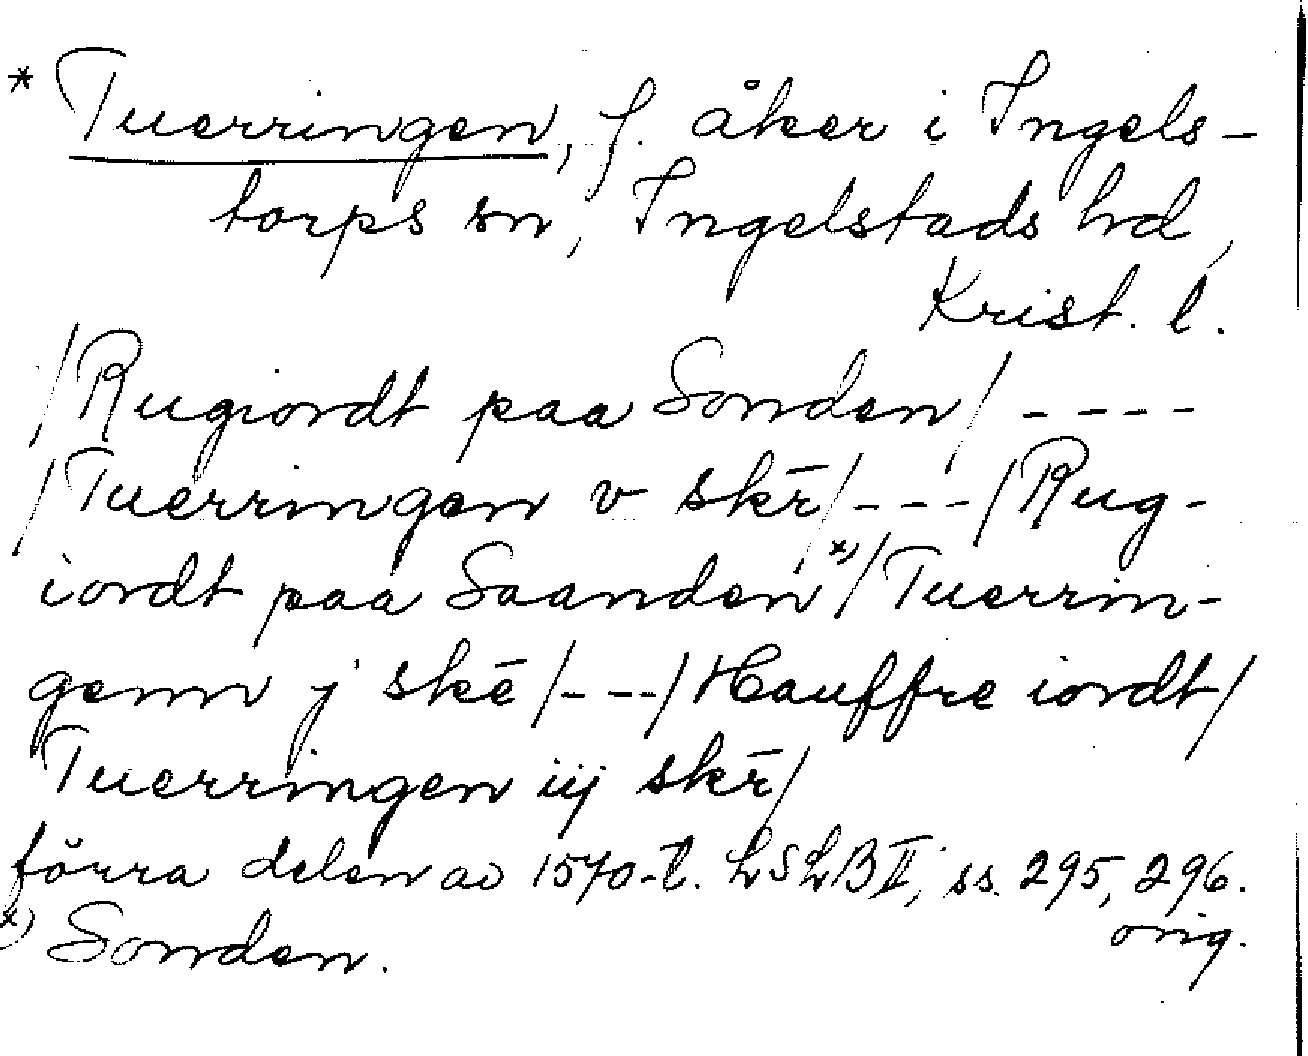 * Tuerringen, f. åker i Ingels-
torps sn, Ingelstads hd,
Krist. l.
/Rugiordt paa Sonden/ ----
/Tuerringen v skr̄/---/Rug-
iordt paa Saanden*)/Tuerrin-
genn j skē/---/Hauffre iordt/
Tuerringen iij skr̄/
förra delen av 1570-t. LSLB II, ss. 295, 296.
orig.
*) Sonden.